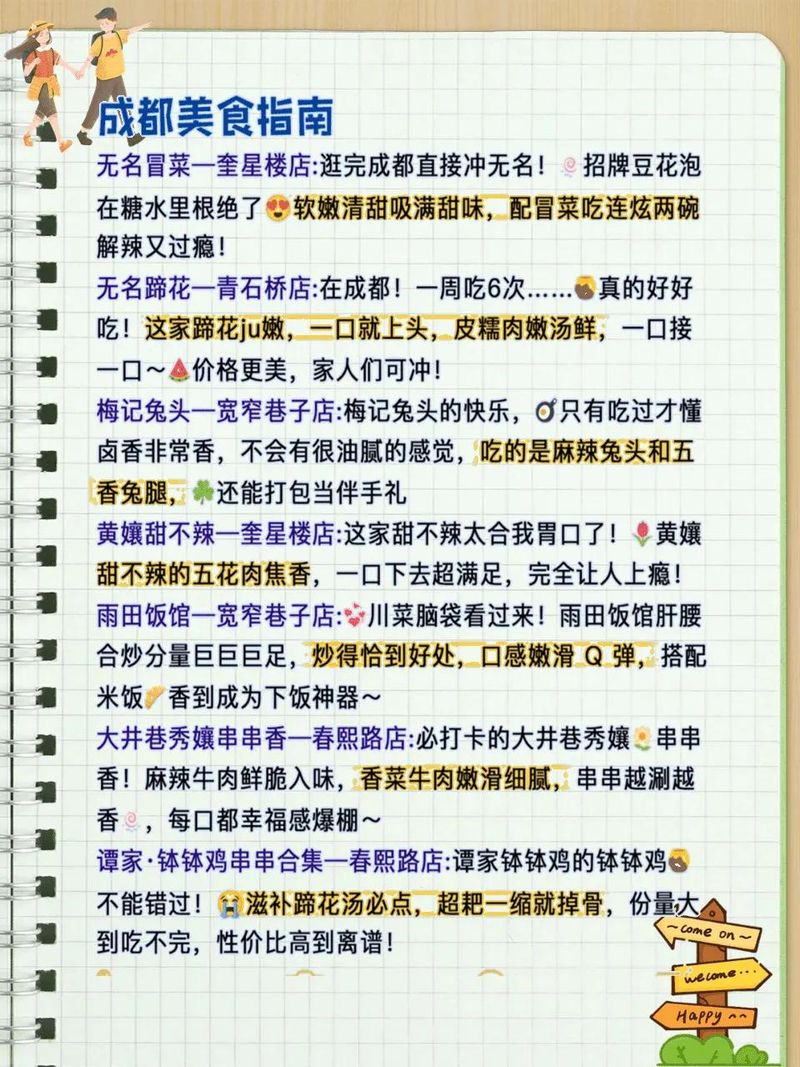 成都美食指南
无名冒菜—奎星楼店:逛完成都直接冲无名！🍥招牌豆花泡
在糖水里根绝了😍软嫩清甜吸满甜味，配冒菜吃连炫两碗
解辣又过瘾！
无名蹄花—青石桥店:在成都！一周吃6次……🍯真的好好
吃！这家蹄花ju嫩，一口就上头，皮糯肉嫩汤鲜，一口接
一口～🍉价格更美，家人们可冲！
梅记兔头—宽窄巷子店:梅记兔头的快乐，🍳只有吃过才懂
卤香非常香，不会有很油腻的感觉，吃的是麻辣兔头和五
香兔腿，☘️还能打包当伴手礼
黄孃甜不辣—奎星楼店:这家甜不辣太合我胃口了！🌷黄孃
甜不辣的五花肉焦香，一口下去超满足，完全让人上瘾！
雨田饭馆—宽窄巷子店:💞川菜脑袋看过来！雨田饭馆肝腰
合炒分量巨巨巨足，炒得恰到好处，口感嫩滑 Q 弹，搭配
米饭🌮香到成为下饭神器～
大井巷秀孃串串香—春熙路店:必打卡的大井巷秀孃🌼串串
香！麻辣牛肉鲜脆入味，香菜牛肉嫩滑细腻，串串越涮越
香🍥，每口都幸福感爆棚～
谭家·钵钵鸡串串合集—春熙路店:谭家钵钵鸡的钵钵鸡🍯
不能错过！😭滋补蹄花汤必点，超耙一缩就掉骨，份量大
到吃不完，性价比高到离谱！
～come on～
welcome···
Happy ^^